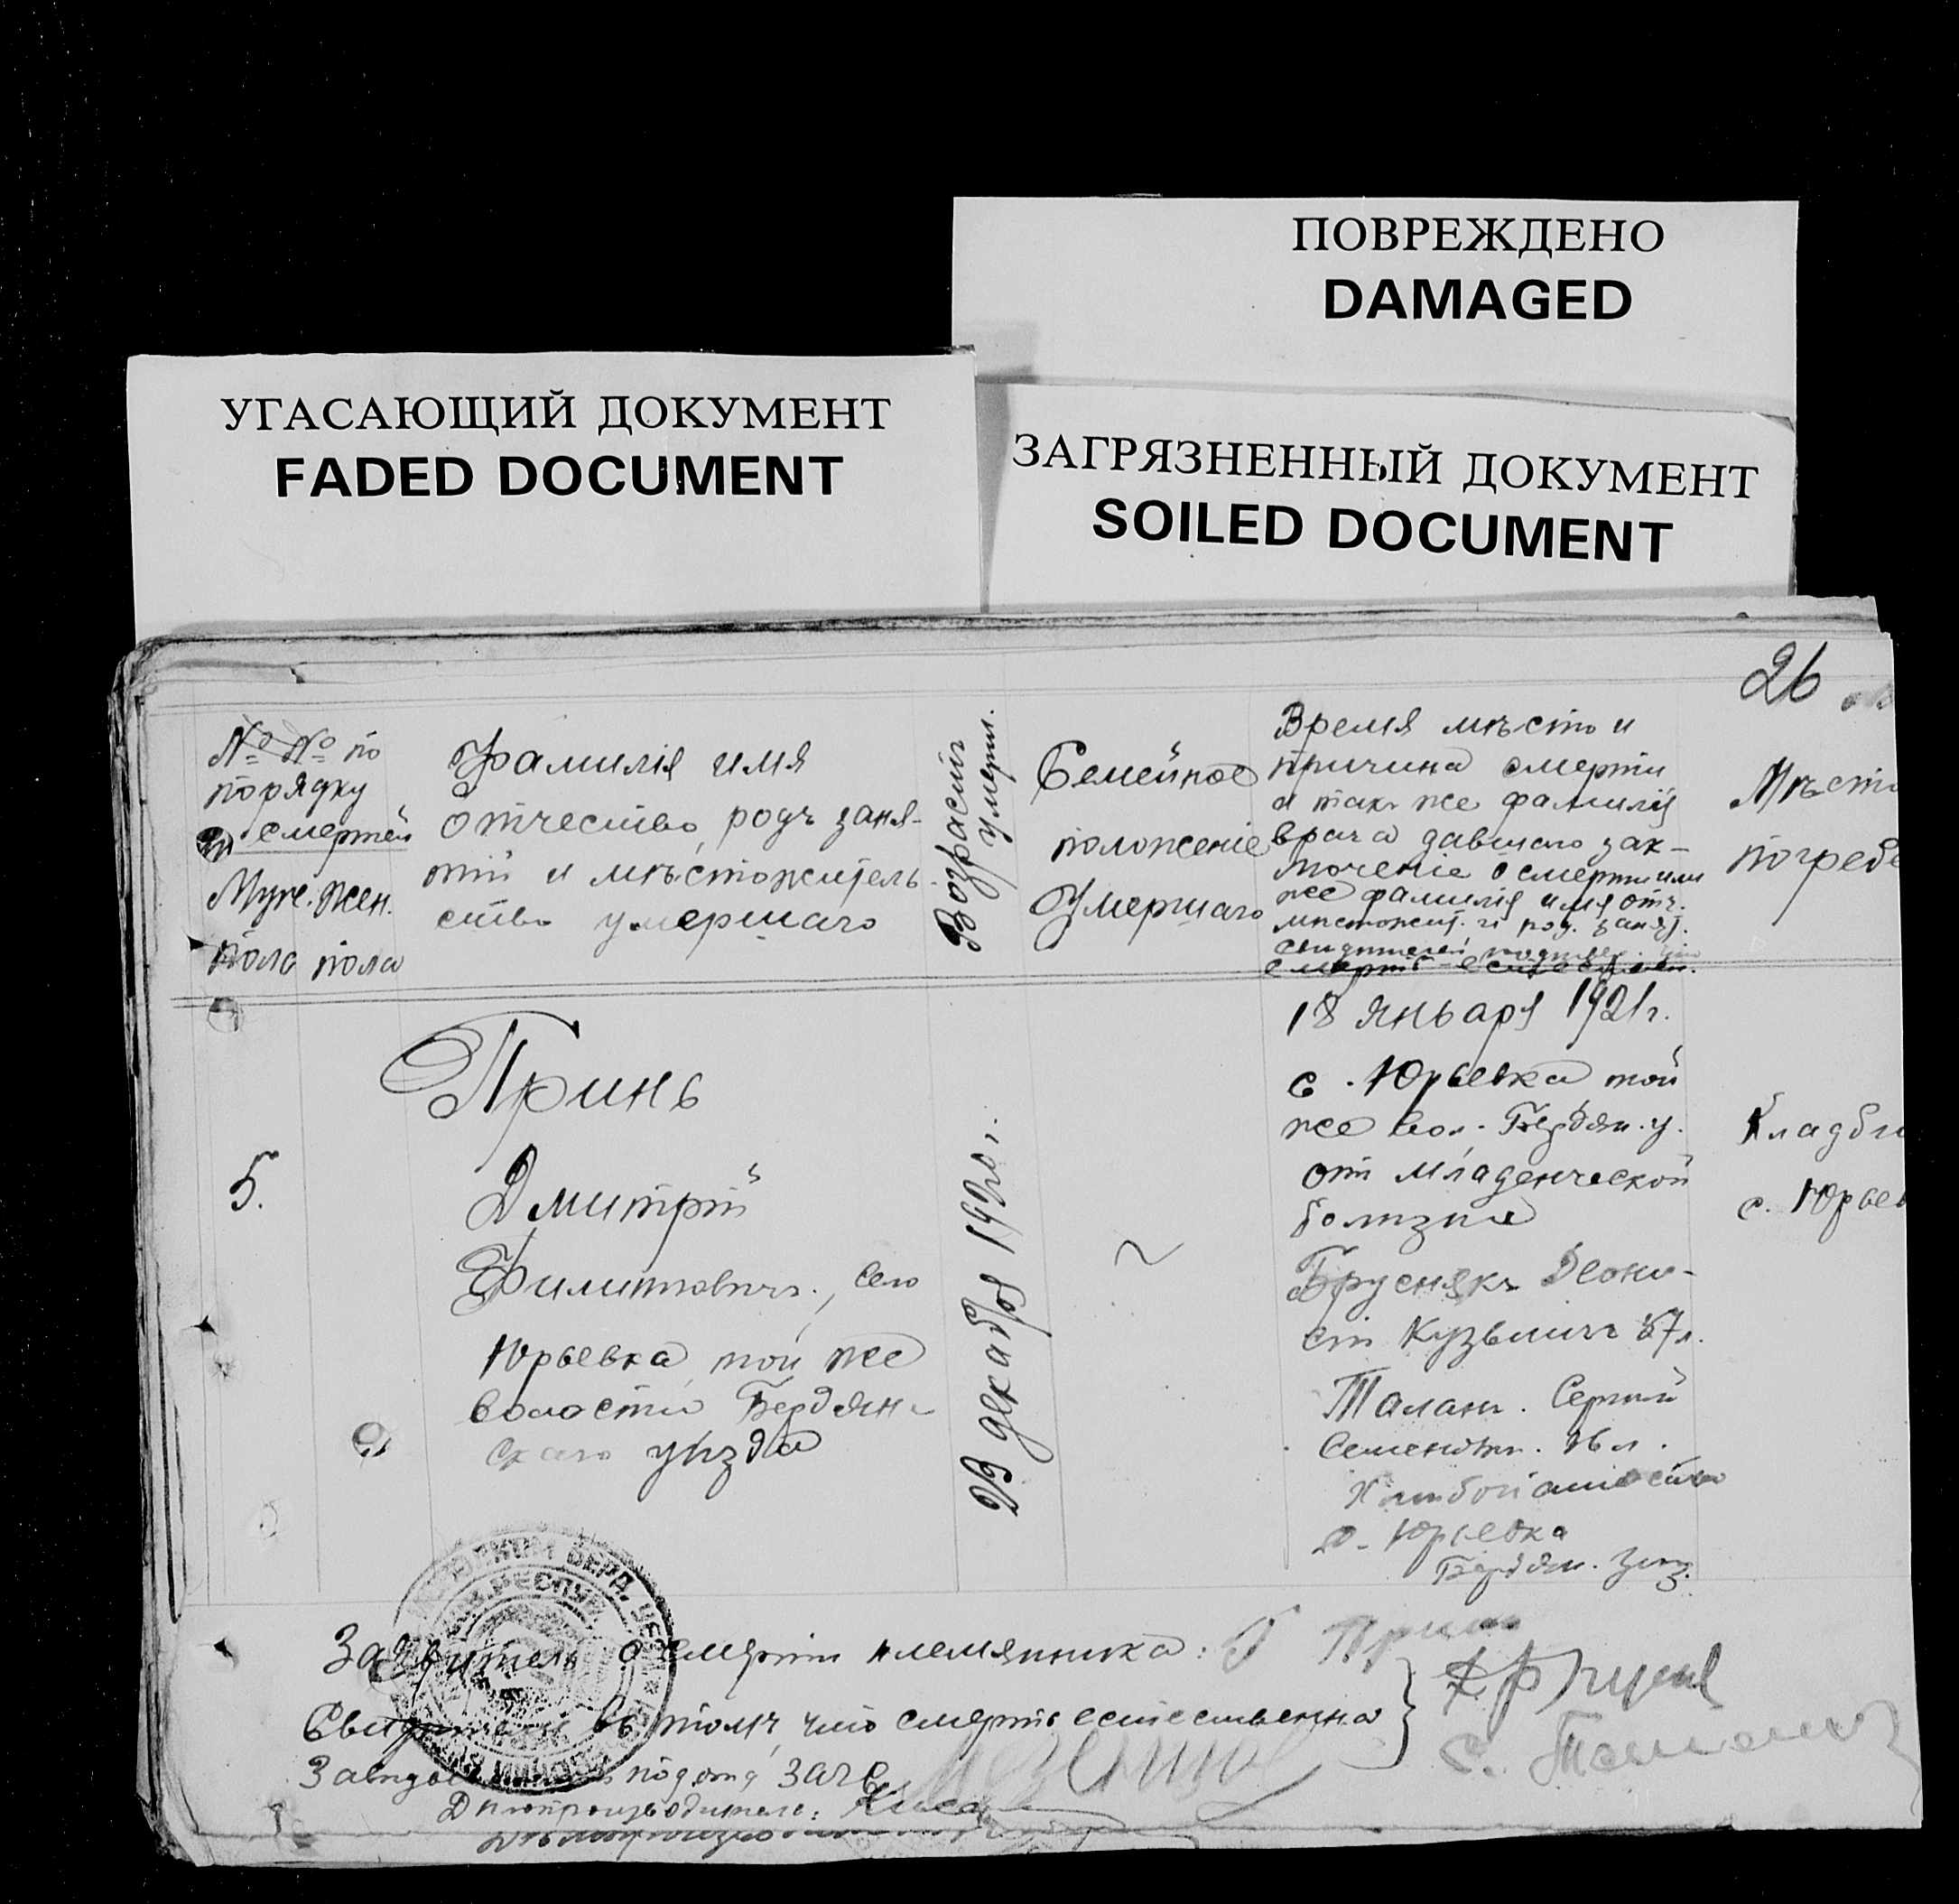 ПОВРЕЖДЕНО
DAMAGED
УГАСАЮЩИЙ ДОКУМЕНТ
FADED DOCUMENT
ЗАГРЯЗНЕННЫЙ ДОКУМЕНТ
SOILED DOCUMENT
26
№ № по
порядку
смертей
Муж. Жен.
пола пола
Фамилія имя
отчество, родъ заня-
тій и мѣстожитель-
ство умершаго
Возрастъ
умерш.
Семейное
положеніе
Умершаго
Время мѣсто и
причина смерти
а так же фамилія
врача давшаго зак-
люченіе о смерти или
же фамилія имя отч.
мѣстожит. и род. занят.
свидѣтелей
смерть естествен.
Мѣсто
погребе
5.
Принь
Дмитрій
Филиповичъ, село
Юрьевка, той же
волости Бердян-
скаго уѣзда
23 декабря 1920 г.
18 января 1921 г.
с. Юрьевка той
же вол. Бердян. у.
от младенческой
болѣзни
Бруснякъ Деони-
сій Кузьмичъ 57 л.
Талан. Сергѣй
Семенович. 26 л.
с. Юрьевка
Бердян. уѣз.
Кладби
с. Юрьев
Заявитель о смерти племянника: Принь
Свидѣтели въ томъ, что смерть естественна
подотд. ЗАГС
Дѣлопроизводитель: